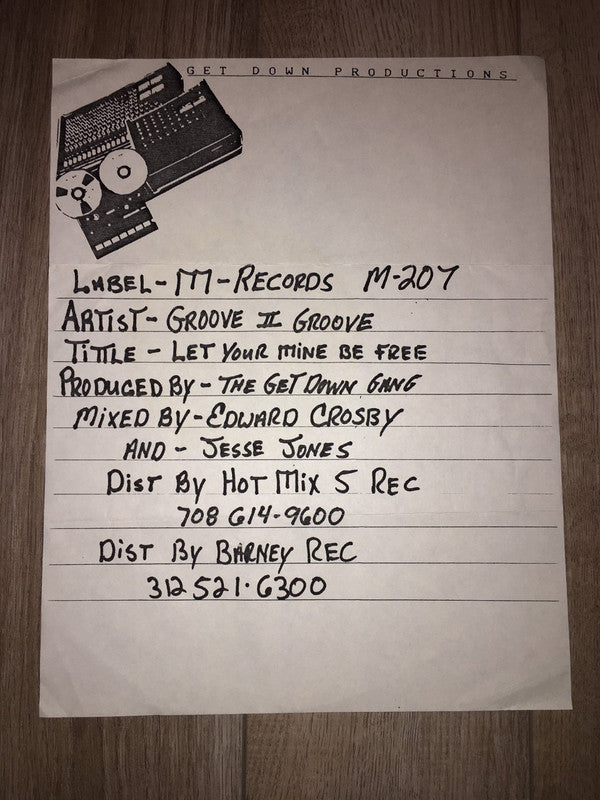 GET DOWN PRODUCTIONS
LABEL-M-RECORDS M-207
ARTIST- GROOVE II GROOVE
TITTLE - LET YOUR MINE BE FREE
PRODUCED BY - THE GET DOWN GANG
MIXED BY - EDWARD CROSBY
AND - JESSE JONES
DIST BY HOT MIX 5 REC
708 614-9600
DIST BY BARNEY REC
312 521-6300